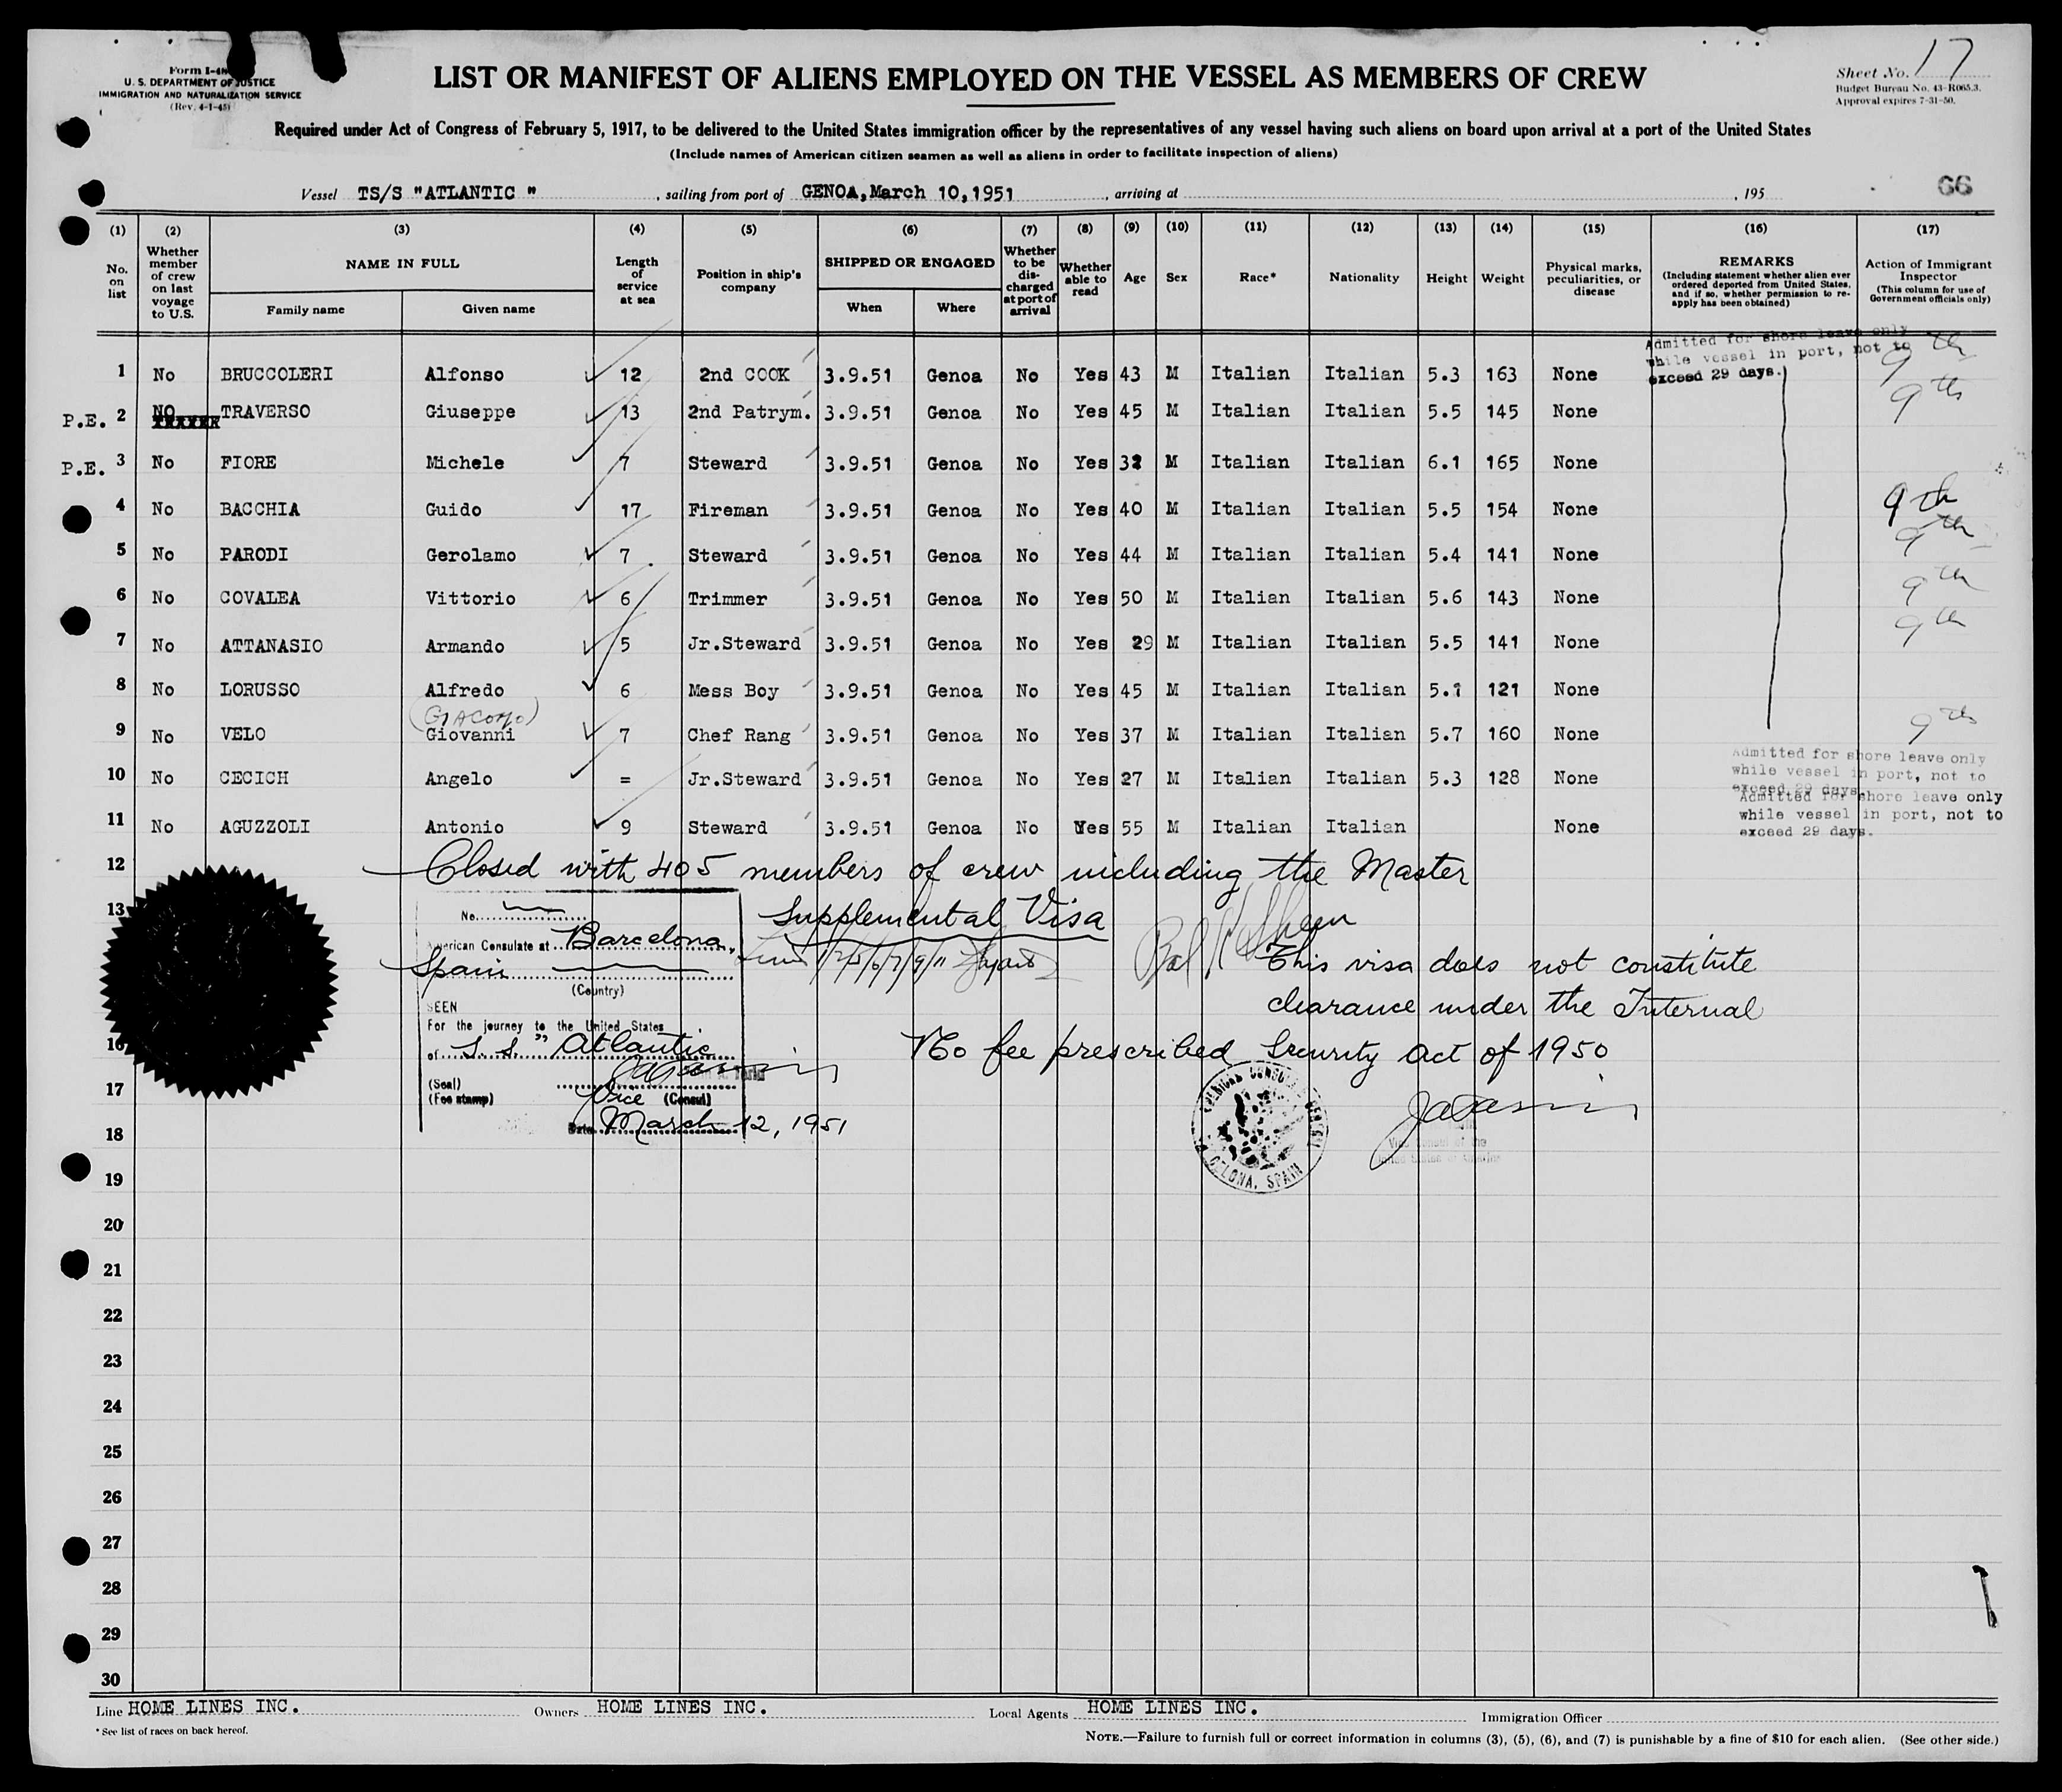 Form I-4
U. S. DEPARTMENT OF JUSTICE
IMMIGRATION AND NATURALIZATION SERVICE
(Rev. 4-1-45)
LIST OR MANIFEST OF ALIENS EMPLOYED ON THE VESSEL AS MEMBERS OF CREW
Sheet No. 17
Budget Bureau No. 43-R065.3.
Approval expires 7-31-50.
Required under Act of Congress of February 5, 1917, to be delivered to the United States immigration officer by the representatives of any vessel having such aliens on board upon arrival at a port of the United States
(Include names of American citizen seamen as well as aliens in order to facilitate inspection of aliens)
Vessel TS/S "ATLANTIC ", sailing from port of GENOA, March 10, 1951, arriving at , 195
66
(1) No. on list
(2) Whether member of crew on last voyage to U.S.
(3) NAME IN FULL Family name Given name
(4) Length of service at sea
(5) Position in ship's company
(6) SHIPPED OR ENGAGED When Where
(7) Whether to be discharged at port of arrival
(8) Whether able to read
(9) Age
(10) Sex
(11) Race*
(12) Nationality
(13) Height
(14) Weight
(15) Physical marks, peculiarities, or disease
(16) REMARKS (Including statement whether alien ever ordered deported from United States, and if so, whether permission to reapply has been obtained)
(17) Action of Immigrant Inspector (This column for use of Government officials only)
Admitted for shore leave only
while vessel in port, not to
exceed 29 days.
1 No BRUCCOLERI Alfonso 12 2nd COOK 3.9.51 Genoa No Yes 43 M Italian Italian 5.3 163 None 9th
P.E. 2 NO TRAVERSO Giuseppe 13 2nd Patrym. 3.9.51 Genoa No Yes 45 M Italian Italian 5.5 145 None 9th
P.E. 3 No FIORE Michele 7 Steward 3.9.51 Genoa No Yes 32 M Italian Italian 6.1 165 None
4 No BACCHIA Guido 17 Fireman 3.9.51 Genoa No Yes 40 M Italian Italian 5.5 154 None 9th
5 No PARODI Gerolamo 7 Steward 3.9.51 Genoa No Yes 44 M Italian Italian 5.4 141 None 9th
6 No COVALEA Vittorio 6 Trimmer 3.9.51 Genoa No Yes 50 M Italian Italian 5.6 143 None 9th
7 No ATTANASIO Armando 5 Jr.Steward 3.9.51 Genoa No Yes 29 M Italian Italian 5.5 141 None 9th
8 No LORUSSO Alfredo 6 Mess Boy 3.9.51 Genoa No Yes 45 M Italian Italian 5.1 121 None
(GIACOMO)
9 No VELO Giovanni 7 Chef Rang 3.9.51 Genoa No Yes 37 M Italian Italian 5.7 160 None 9th
Admitted for shore leave only
while vessel in port, not to
exceed 29 days.
10 No CECICH Angelo = Jr.Steward 3.9.51 Genoa No Yes 27 M Italian Italian 5.3 128 None
Admitted for shore leave only
while vessel in port, not to
exceed 29 days.
11 No AGUZZOLI Antonio 9 Steward 3.9.51 Genoa No Yes 55 M Italian Italian None
12 Closed with 405 members of crew including the Master
13 No.
Supplemental Visa
American Consulate at Barcelona,
Spain
(Country)
This visa does not constitute
clearance under the Internal
SEEN
For the journey to the United States
16
of S. S. "Atlantic
No fee prescribed Security Act of 1950
(Seal)
(Fee stamp)
Vice (Consul)
17
Date March 12, 1951
18
SPAIN
19
20
21
22
23
24
25
26
27
28
29
30
Line HOME LINES INC. Owners HOME LINES INC. Local Agents HOME LINES INC. Immigration Officer
* See list of races on back hereof.
NOTE.—Failure to furnish full or correct information in columns (3), (5), (6), and (7) is punishable by a fine of $10 for each alien. (See other side.)